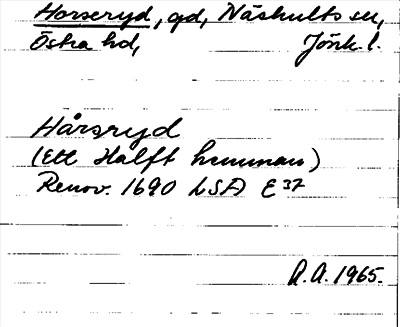 Horseryd, gd, Näshults sn,
Östra hd, Jönk. l.
Hårsryd
(Ett Halft hemman)
Renov. 1690 LSA E 37
A.A. 1965.